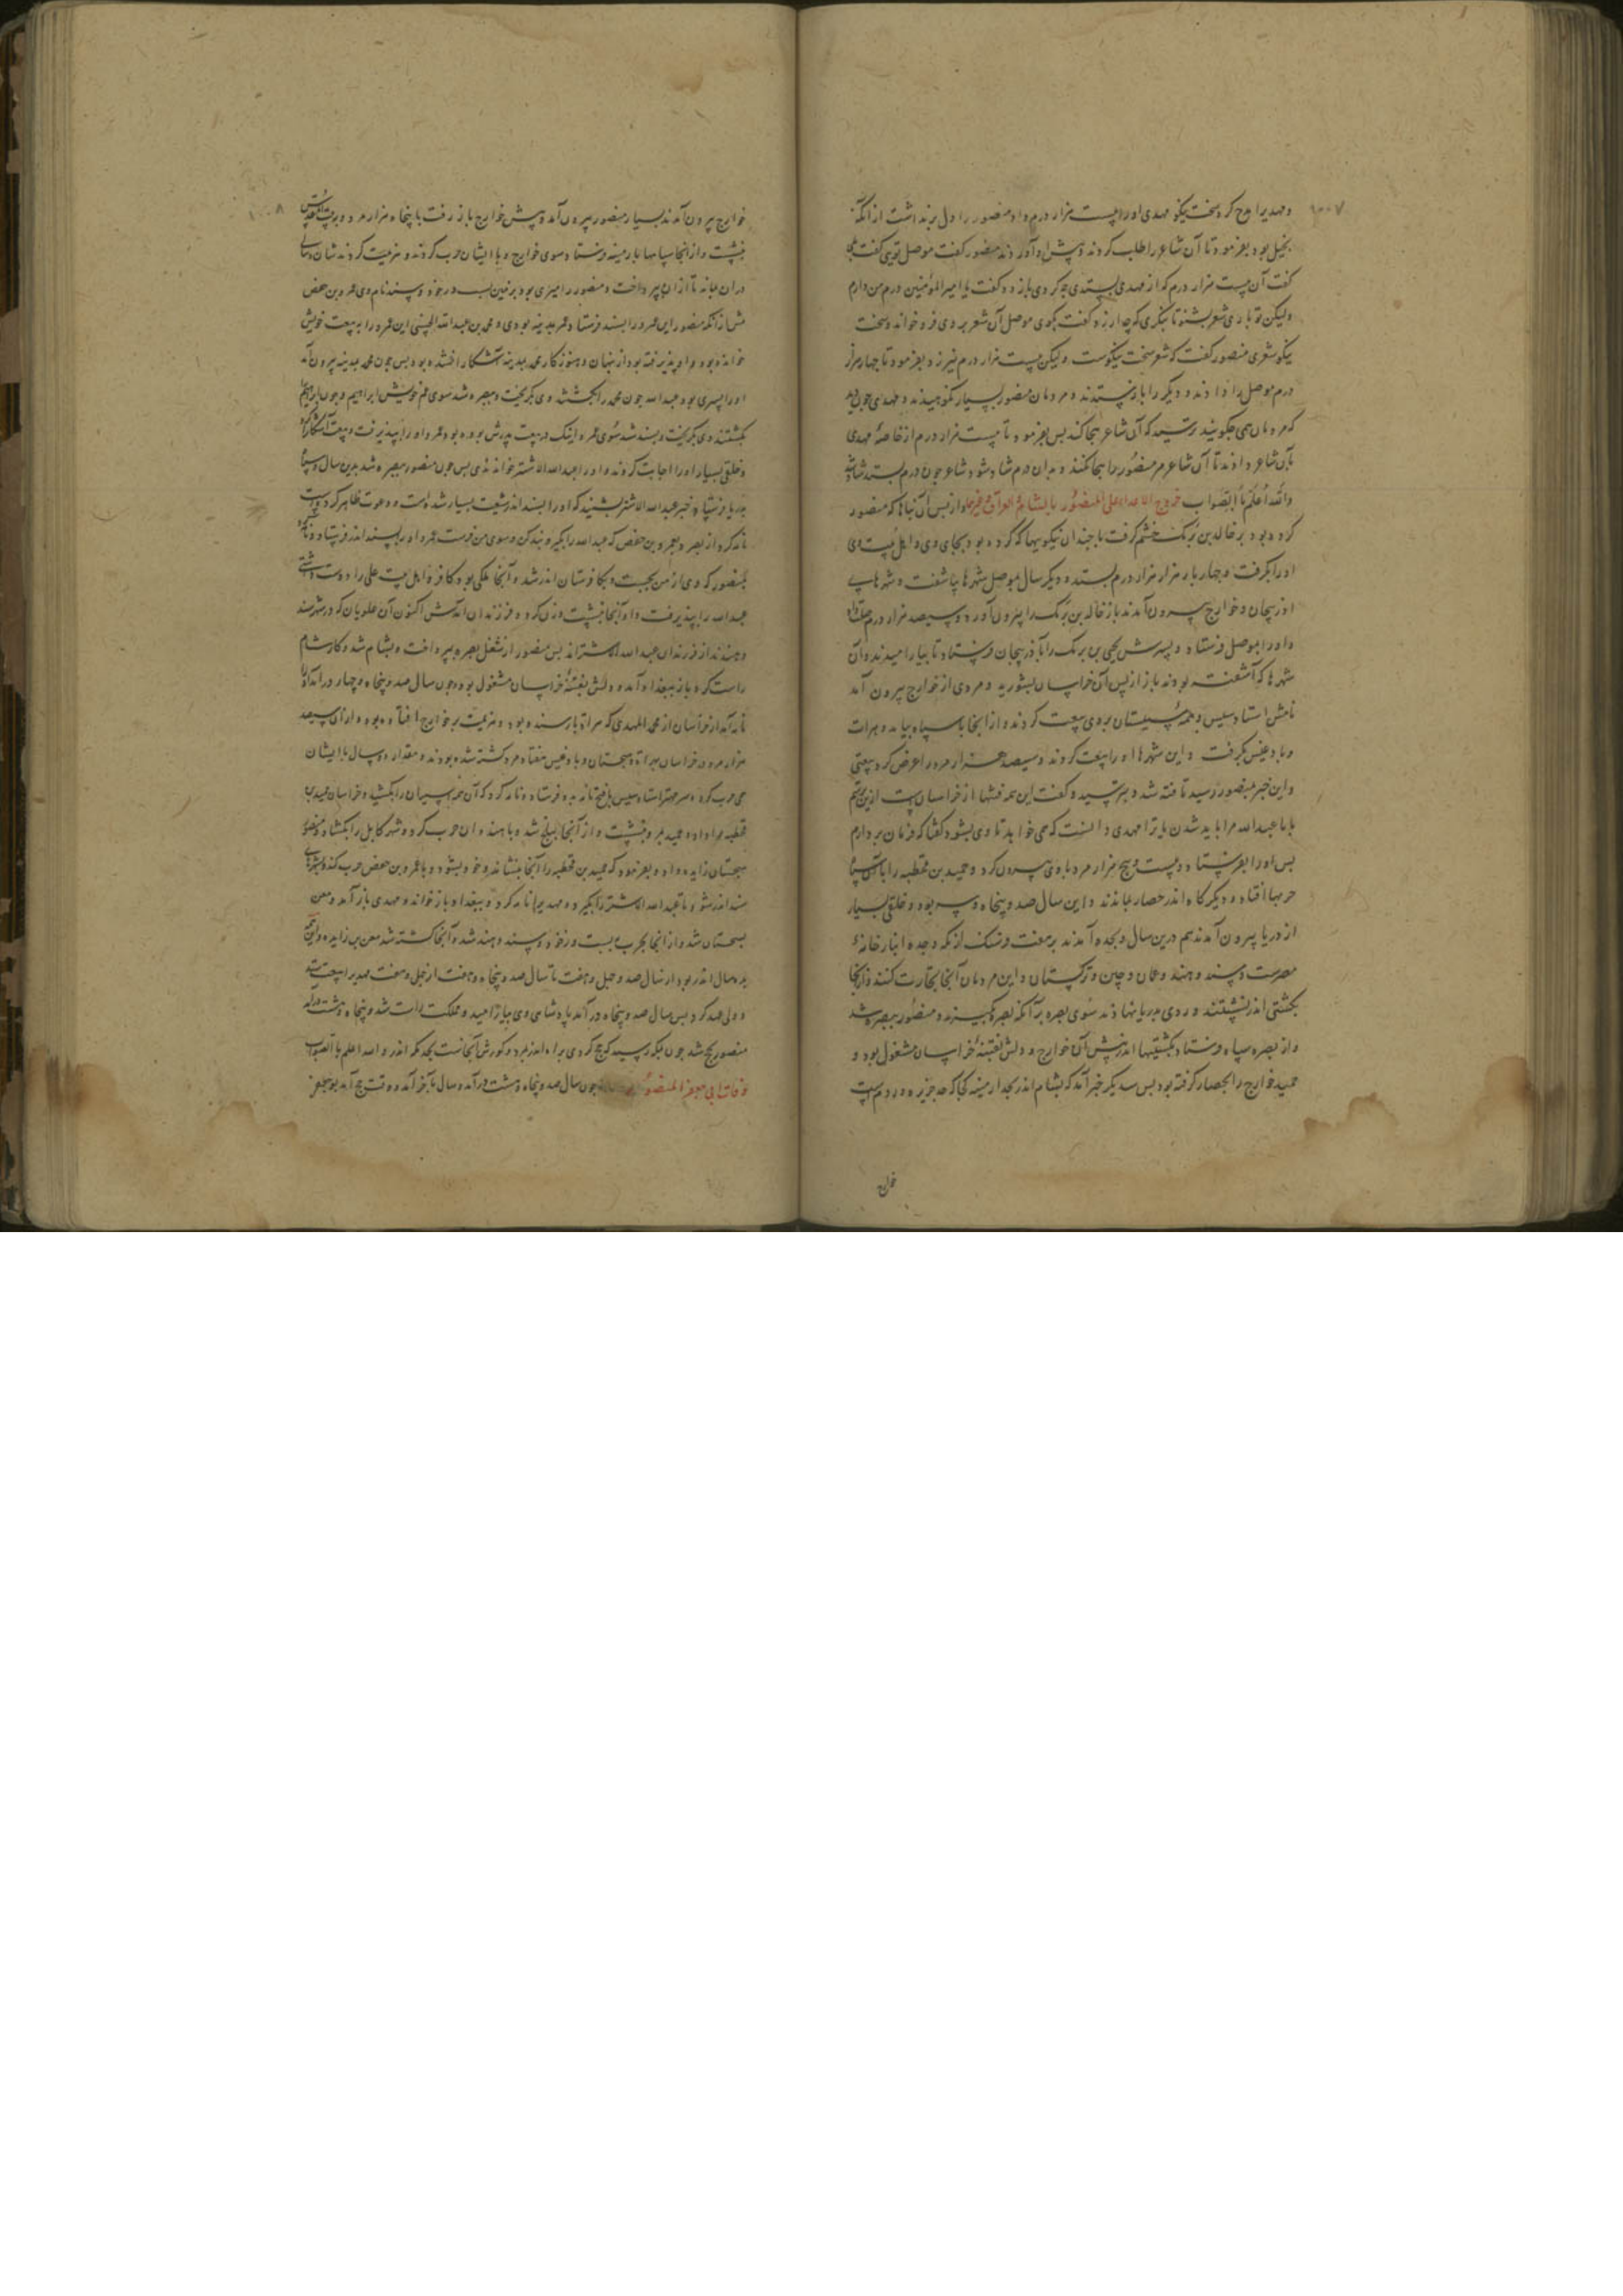 ۱۰۰۷
و مهدیرا مدح کرد سخت نیکو مهدی اورا بیست هزار درم داد منصور را دل برنداشت ازانکه
بخیل بود بفرمود تا آن شاعر را طلب کردند و پیش او آوردند منصور گفت موصل تویی گفت بلی
گفت آن بیست هزار درم که از مهدی بستدی چه کردی باز ده گفت یا امیر المؤمنین درم من دارم
ولیکن تو باری شعر بشنو تا بنگری که چه ارزد گفت بگوی موصل آن شعر بر وی فرو خواند و سخت
نیکو شعری منصور گفت که شعر سخت نیکوست ولیکن بیست هزار درم نیرزد بفرمود تا چهار هزار
درم موصل را دادند و دیگر را باز ستدند و مردمان منصور بسیار نکوهیدند و مهدی چون دید
که مردمان همی چگویند ترسید که آن شاعر هجا کند پس بفرمود تا بیست هزار درم از خاصهٔ مهدی
بآن شاعر دادند تا آن شاعر مر منصور را هجا نکند و بدان درم شاد شود شاعر چون درم بستد شاد شد
والله أعلم بالصواب خروج الاعداء علی المنصور بالشام و العراق و غیرهما و از پس آن بناها که منصور
کرده بود بر خالد بن برمک خشم گرفت با چندان نیکویها که کرده بود بجای وی و اهل بیت وی
اورا بگرفت و چهار بار هزار هزار درم بستد و دیگر سال موصل شهرها بیاشفت و شهرهای
اذربیجان و خوارج بیرون آمدند باز خالد بن برمک را بیرون آورد و سیصد هزار درم
و اورا بموصل فرستاد و پسرش یحیی بن برمک را بآذربیجان فرستاد تا بیارامیدند و آن
شهرها که آشفته بودند باز از پس آن خراسان بشورید و مردی از خوارج بیرون آمد
نامش استاد سیس و همه سیستان بر وی بیعت کردند و از آنجا با سپاه بیامد و هرات
و بادغیس بگرفت و این شهرها اورا بیعت کردند و سیصد هزار مرد را عرض کرد بیعتی
و این خبر بمنصور رسید تافته شد و بترسید و گفت این همه فتنها از خراسان است
یا با عبدالله مرا باید شدن یا ترا مهدی دانست که می خواهد تا وی بشود گفتا که فرمان بردارم
پس اورا بفرستاد و بیست و پنج هزار مرد با وی بیرون کرد و حمید بن قحطبه را با آن سپاه
حربها افتاد و دیگر گاه اندر حصار بماندند و این سال صد و پنجاه و سه بود و خلقی بسیار
از دریا بیرون آمدند هم درین سال و بجده آمدند بر هفت فرسنگ از مکه و جده انبار خانهٔ
مصرست و سند و هند و عمان و چین و ترکستان و این مردمان آنجا تجارت کنند و از آنجا
بکشتی اندر نشستند و روی بدریا نهادند سوی بصره برآنکه بصره بگیرند و منصور ببصره شد
و از بصره سپاه فرستاد بکشتیها اندر پیش آن خوارج و دلش بفتنهٔ خراسان مشغول بود و
حمید خوارج را بحصار گرفته بود پس سدیگر خبر آمد که بشام اندر بحد ارمینیه کجا که حد جزیره و روم است
خوارج
۱۰۰۸
خوارج بیرون آمدند بسیار منصور بیرون آمد و پیش خوارج باز رفت با پنجاه هزار مرد و به بیت المقدس
بنشست و از آنجا سپاهها بارمینیه فرستاد و سوی خوارج و با ایشان حرب کردند و هزیمت کردندشان و سالی
دران بماند تا از ان بپرداخت و منصور را میری بود بزمین سند نام وی عمرو بن حفص
پیش ازانکه منصور این عمرو را بسند فرستاد و عمر بمدینه بودی و محمد بن عبدالله الحسنی این عمرو را به بیعت خویش
خوانده بود و او پذیرفته بود از پنهان و هنوز کار محمد بمدینه آشکارا نشده بود پس چون محمد بمدینه بیرون آمد
اورا پسری بود عبدالله چون محمد را بکشتند وی بگریخت و ببصره شد سوی عم خویش ابراهیم و چون ابراهیم را
بکشتند وی بگریخت و بسند شد سوی عمرو اینک در بیعت پدرش بوده بود عمرو اورا بپذیرفت و بیعت آشکارا کرد
و خلقی بسیار اورا اجابت کردند و اورا عبدالله الاشتر خواندندی پس چون منصور ببصره شد بدین سال و سپاه
بدریا فرستاد خبر عبدالله الاشتر بشنید که اورا بسند اندر شیعت بسیار شده است و دعوت ظاهر کرد
نامه کرد از بصره بعمرو بن حفص که عبدالله را بگیر و بند کن و سوی من فرست عمرو اورا بسند اندر فرستاد و نامه کرد
بمنصور که وی از من بجست و بکافرستان اندر شد و آنجا ملکی بود کافر و اهل بیت علی را دوست داشتی
عبدالله را بپذیرفت و او آنجا بنشست و زن کرد و فرزندان آمدش اکنون آن علویان که در شهر سند
و هندند از فرزندان عبدالله الاشتراند پس منصور از شغل بصره بپرداخت و بشام شد و کار شام
راست کرد و باز ببغداد آمد و دلش بفتنهٔ خراسان مشغول بود و چون سال صد و پنجاه و چهار درآمد
نامه آمد از خراسان از محمد المهدی که مر او را بار سنده بود و هزیمت بر خوارج افتاده بود و از آن سیصد
هزار مرد در خراسان بهراة و سجستان و بادغیس هفتاد مرد کشته شده بودند و مقدار دو سال با ایشان
می حرب کرد و سر مهتر استاد سیس با فتح نامه بدو فرستاد و نامه کرد که آن همه اسیران را بکشد و خراسان حمید بن
قحطبه را داد و حمید بمرو بنشست و از آنجا ببلخ شد و با هندوان حرب کرد و شهر کابل را بگشاد و منصور
سجستان زایده داد و بفرمود که حمید بن قحطبه را آنجا بنشاند و خود بشود و با عمرو بن حفص حرب کند
سند اندر شود تا عبدالله الاشتر را بگیرد و مهدیرا نامه کرد و ببغداد باز خواند و مهدی باز آمد و معن
بسجستان شد و از آنجا بحرب بست و سند و هند شد و آنجا کشته شد معن بن زایده و این همه
بده سال اندر بود از سال صد و چهل و هفت تا سال صد و پنجاه و هفت
و ولی عهد کرد پس سال صد و پنجاه درآمد پادشاهی وی بیارامید و مملکت راست شد و پنجاه و هشت درآمد
منصور بحج شد چون بمکه رسید که حج کردی براه اندر بمرد و گورش آنجاست بحد مکه اندر والله اعلم بالصواب
وفات ابی جعفر المنصور چون سال صد و پنجاه و هشت درآمد و سال بآخر آمد و وقت حج آمد بو جعفر